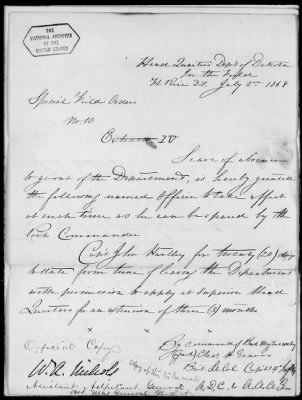 THE
NATIONAL ARCHIVES
OF THE
UNITED STATES
Head Quarters Dept of Dakota
In the Field
July 5th 1868
Special Field Orders
No. 10
Extract IV
Leave of absence
to go out of the Department, is hereby granted
the following named Officer to take effect
at such time as he can be spared by the
Post Commander
Capt John Hartley for twenty (20) days
to date from time of leaving the Department
with permission to apply at Superior Head
Quarters for an extension of three (3) months
Official Copy
By command of
(signed) Chas H. Graves
W. A. Nichols
Assistant Adjutant General
A.D.C. & A.A.A. Gen